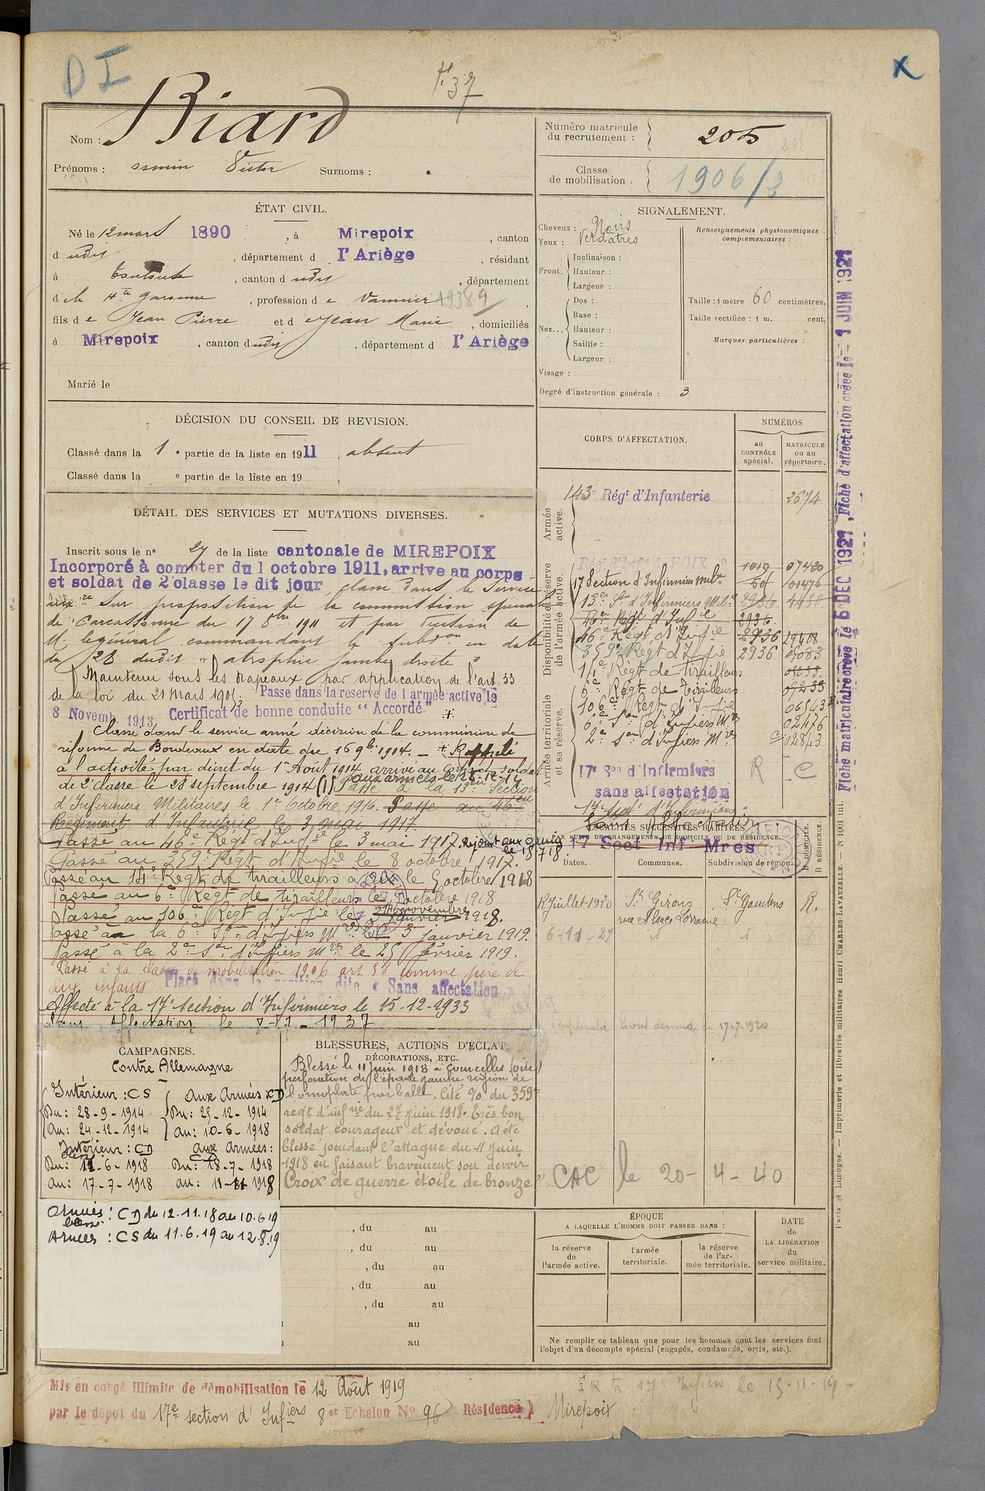 DI
F. 37
X
Nom : Biard
Prénoms : Victor Surnoms :
Numéro matricule du recrutement : 205
Classe de mobilisation . 1906/3
ÉTAT CIVIL.
Né le 12 mars 1890 , à Mirepoix , canton
d udit , département d l'Ariège , résidant
à Toulouse , canton d udit , département
d e la Hte Garonne , profession d e Vannier
fils d e Jean Pierre et d e Jean Marie , domiciliés
à Mirepoix , canton dudit , département d l'Ariège
Marié le
SIGNALEMENT.
Cheveux : Noirs
Yeux : Verdâtres
Front. Inclinaison :
Hauteur :
Largeur :
Nez... Dos :
Base :
Hauteur :
Saillie :
Largeur :
Visage :
Renseignements physionomiques complémentaires :
Taille : 1 mètre 60 centimètres,
Taille rectifiée : 1 m. cent,
Marques particulières :
Degré d'instruction générale : 3
DÉCISION DU CONSEIL DE REVISION.
Classé dans la 1 e partie de la liste en 1911 , absent
Classé dans la e partie de la liste en 19
DÉTAIL DES SERVICES ET MUTATIONS DIVERSES.
Inscrit sous le n° 27 de la liste cantonale de MIREPOIX
Incorporé à compter du 1 octobre 1911, arrive au corps
et soldat de 2e classe le dit jour classé dans le Service
auxre sur proposition de la commission spéciale
de Carcassonne du 17 8bre 1911 et par décision de
M. le général commandant la subdon en date
du 28 dudit "atrophie jambe droite"
Maintenu sous les drapeaux par application de l'art. 33
de la loi du 21 mars 1905. Passe dans la reserve de l armée active le
8 Novemb. 1913. Certificat de bonne conduite "Accordé"
Classé dans le service armé décision de la commission de
réforme de Bordeaux en date du 16 9bre 1914. Rappelé
à l'activité par décret du 1er Août 1914 arrivé au corps et soldat
de 2e classe le 28 septembre 1914 Passé à la 13e Section
d'Infirmiers Militaires le 1er Octobre 1916. Passé au 46e
Régiment d'Infanterie le 3 mai 1917
Passé au 46e Régt d'Infie le 3 mai 1917. Rejoint aux armées le 18 7 18.
Passé au 359e Régt d'Infie le 8 octobre 1917.
Passé au 14e Régt de tirailleurs le 5 octobre 1918
Passé au 6e Régt de tirailleurs le octobre 1918
Passé au 106e Régt d'Infie le novembre 1918.
Passé à la 6e Son d'Infiers Mres le 3 janvier 1919.
Passé à la 2e Son d'Infiers Mres le 25 février 1919.
Passé à la classe de mobilisation 1906 art 58 comme père de
deux enfants Placé dans la position dite "Sans affectation
Affecté à la 17e section d'Infirmiers le 15-12-1933
Sans Affectation le 1937
CORPS D'AFFECTATION.
NUMÉROS
au CONTRÔLE spécial.
MATRICULE ou au répertoire.
Armée active.
143e Régt d'Infanterie 2674
Disponibilité et réserve de l'armée active.
17 Section d'Infirmiers milre
13e Son d'Infirmiers Milre
46e Régt d'Infie
46e Régt d'Infie 2936
359e Régt d'Infie 2936
14e Régt de Tirailleurs
6e Régt de Tirailleurs
106e Régt d'Infie
6e Son d'Infiers Mres
2e Son d'Infiers Mres
Armée territoriale et sa réserve.
17e Son d'Infirmiers R C
sans affectation
17 Sect Inf Mres
LOCALITÉS SUCCESSIVES HABITÉES
PAR SUITE DE CHANGEMENTS DE DOMICILE OU DE RÉSIDENCE.
Dates. Communes. Subdivision de région. D. DOMICILE. R. RÉSIDENCE.
12 Juillet 1920 St Girons St Gaudens R.
rue Alsace Lorraine
6-11-29 d d
CAC le 20-4-40
CAMPAGNES.
Contre Allemagne
Intérieur : CS
Du : 28-9-1914
Au : 24-12-1914
aux Armées : CD
Du : 25-12-1914
au : 10-6-1918
Intérieur : CD
Du : 11-6-1918
Au : 17-7-1918
aux Armées :
Du : 18-7-1918
au : 11-11-1918
Armées : CD du 12.11.18 au 10.6.19
Armées : CS du 11.6.19 au 12.8.19
BLESSURES, ACTIONS D'ÉCLAT, DÉCORATIONS, ETC.
Blessé le 11 juin 1918 à Courcelles (oise)
perforation de l'épaule gauche région de
l'omoplate par balle. Cité Oo du 359e
regt d'infie du 27 juin 1918. Très bon
soldat courageux et dévoué. A été
blessé pendant l'attaque du 11 juin
1918 en faisant bravement son devoir
Croix de guerre étoile de bronze
, du au
, du au
, du au
, du au
, du au
au
au
ÉPOQUE
A LAQUELLE L'HOMME DOIT PASSER DANS :
la réserve de l'armée active.
l'armée territoriale.
la réserve de l'armée territoriale.
DATE DE LA LIBÉRATION du service militaire.
Ne remplir ce tableau que pour les hommes dont les services font
l'objet d'un décompte spécial (engagés, condamnés, omis, etc.).
Mis en congé illimité de démobilisation le 12 Août 1919
par le dépot du 17e section d'Infiers 8er Echelon No 96 Résidence) Mirepoix
Fiche matriculaire créée le 6 DEC 1921 , Fiche d'affectation créée le 1 JUIN 1921
Paris et Limoges. — Imprimerie et librairie militaires Henri CHARLES-LAVAUZELLE.